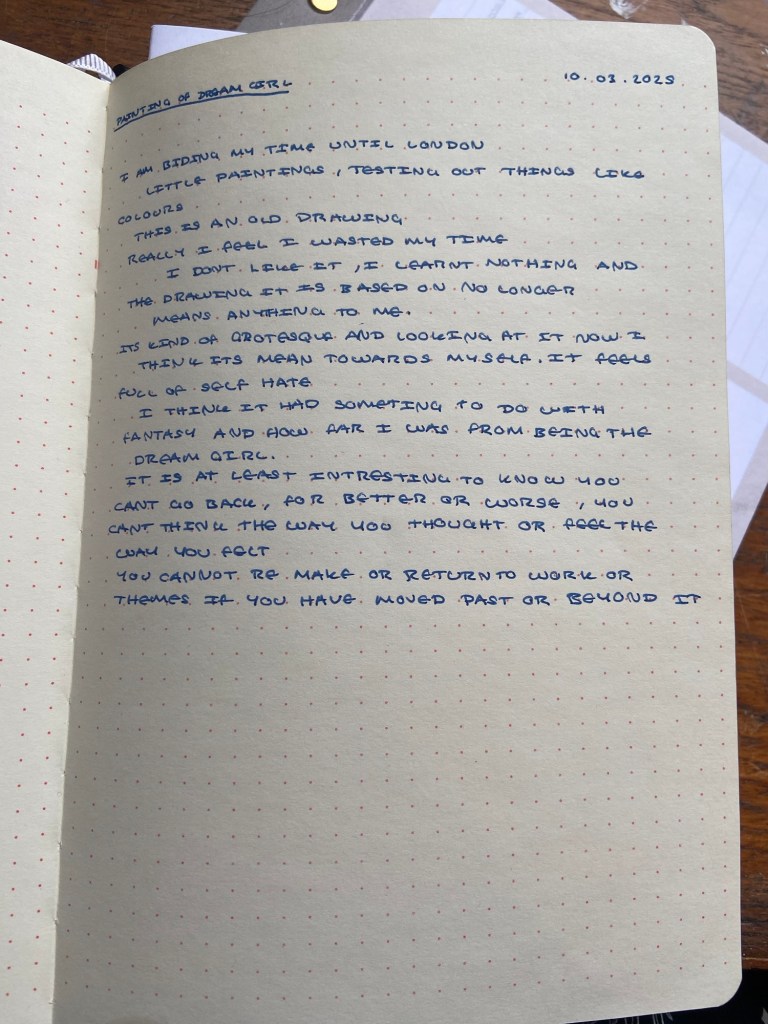 PAINTING OF DREAM GIRL
10.03.2025
I AM BIDING MY TIME UNTIL LONDON
LITTLE PAINTINGS, TESTING OUT THINGS LIKE
COLOURS
THIS IS AN OLD DRAWING
REALLY I FEEL I WASTED MY TIME
I DONT LIKE IT, I LEARNT NOTHING AND
THE DRAWING IT IS BASED ON NO LONGER
MEANS ANYTHING TO ME.
ITS KIND OF GROTESQUE AND LOOKING AT IT NOW I
THINK ITS MEAN TOWARDS MYSELF. IT FEELS
FULL OF SELF HATE
I THINK IT HAD SOMETING TO DO WITH
FANTASY AND HOW FAR I WAS FROM BEING THE
DREAM GIRL.
IT IS AT LEAST INTRESTING TO KNOW YOU
CANT GO BACK, FOR BETTER OR WORSE, YOU
CANT THINK THE WAY YOU THOUGHT OR FEEL THE
WAY YOU FELT
YOU CANNOT RE MAKE OR RETURN TO WORK OR
THEMES IF YOU HAVE MOVED PAST OR BEYOND IT